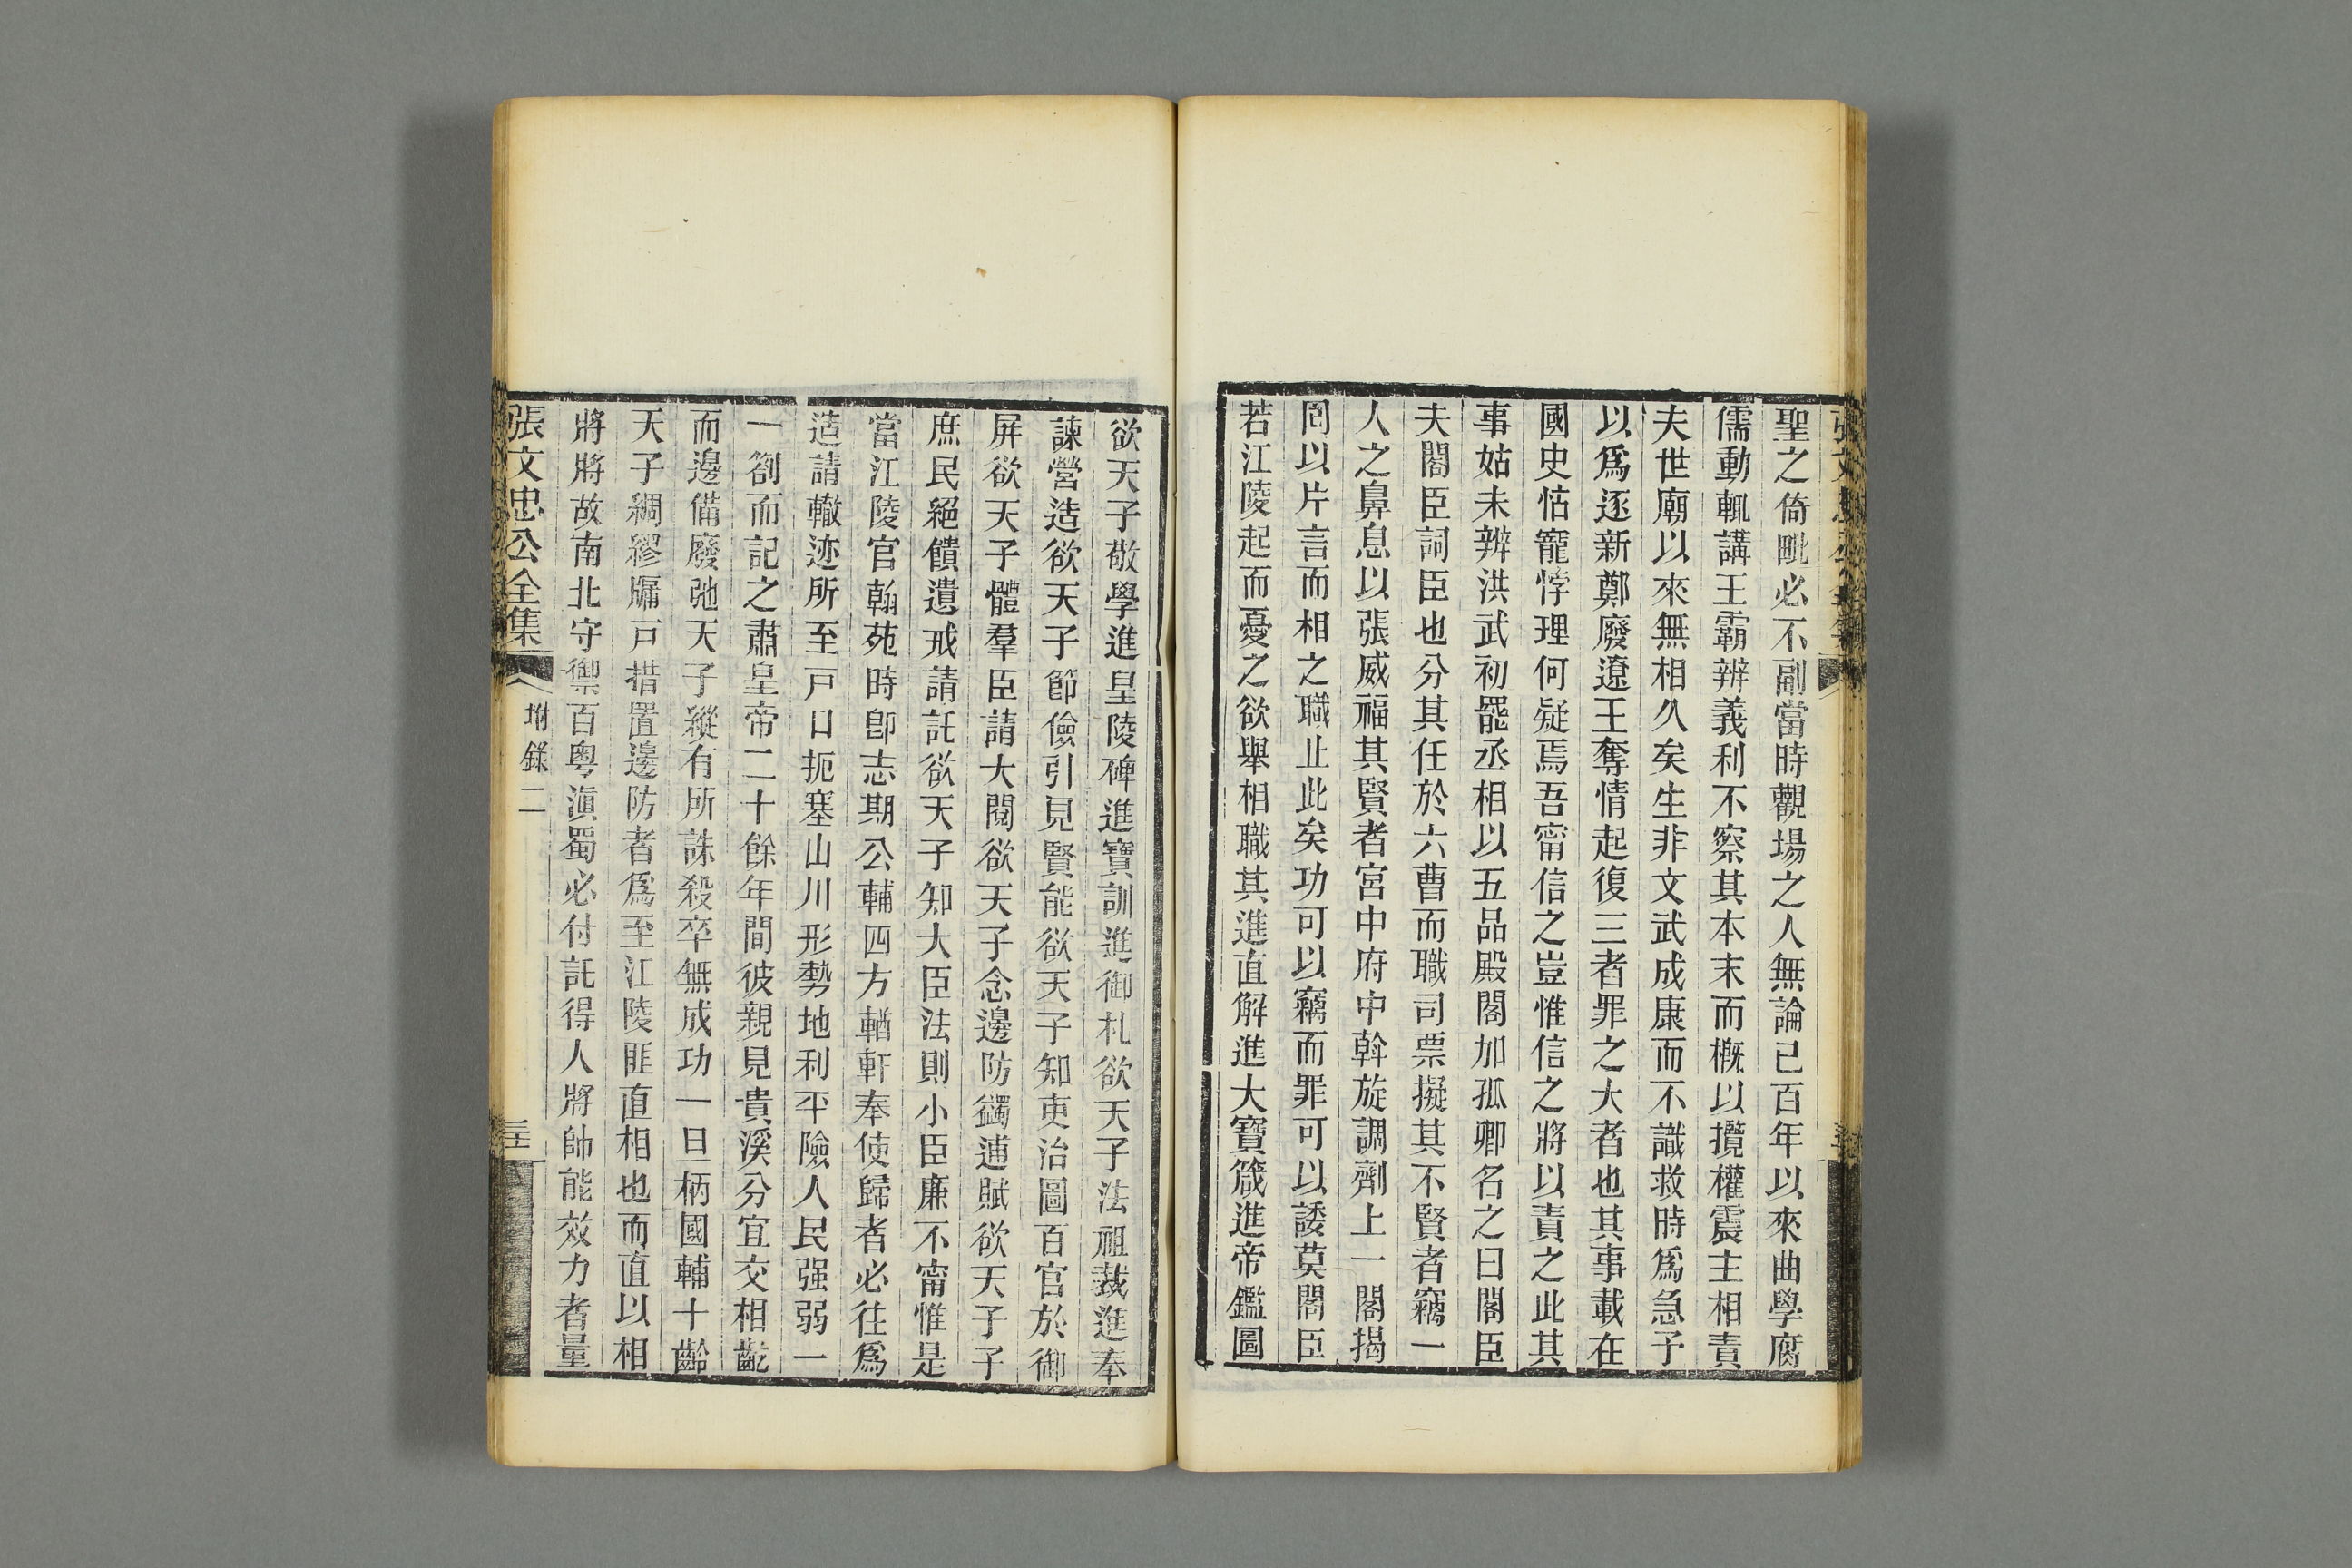 聖之倚毗必不副當時觀場之人無論已百年以來曲學腐
儒動輒講王霸辨義利不察其本末而槪以攬權震主相責
夫世廟以來無相久矣生非文武成康而不識救時爲急予
以爲逐新鄭廢遼王奪情起復三者罪之大者也其事載在
國史怙寵悖理何疑焉吾甯信之豈惟信之將以責之此其
事姑未辨洪武初罷丞相以五品殿閣加孤卿名之曰閣臣
夫閣臣詞臣也分其任於六曹而職司票擬其不賢者竊一
人之鼻息以張威福其賢者宮中府中斡旋調劑上一閣揭
罔以片言而相之職止此矣功可以竊而罪可以諉莫閣臣
若江陵起而憂之欲舉相職其進直解進大寶箴進帝鑑圖
欲天子敬學進皇陵碑進寶訓進御札欲天子法祖裁進奉
諫營造欲天子節儉引見賢能欲天子知吏治圖百官於御
屏欲天子體羣臣請大閱欲天子念邊防蠲逋賦欲天子子
庶民絕饋遺戒請託欲天子知大臣法則小臣廉不甯惟是
當江陵官翰苑時卽志期公輔四方輶軒奉使歸者必往爲
造請轍迹所至戸口扼塞山川形勢地利平險人民强弱一
一劄而記之肅皇帝二十餘年間彼親見貴溪分宜交相齕
而邊備廢弛天子縱有所誅殺卒無成功一旦柄國輔十齡
天子綢繆牖戸措置邊防者爲至江陵匪直相也而直以相
將將故南北守禦百粤滇蜀必付託得人將帥能效力者量
張文忠公全集
附錄二